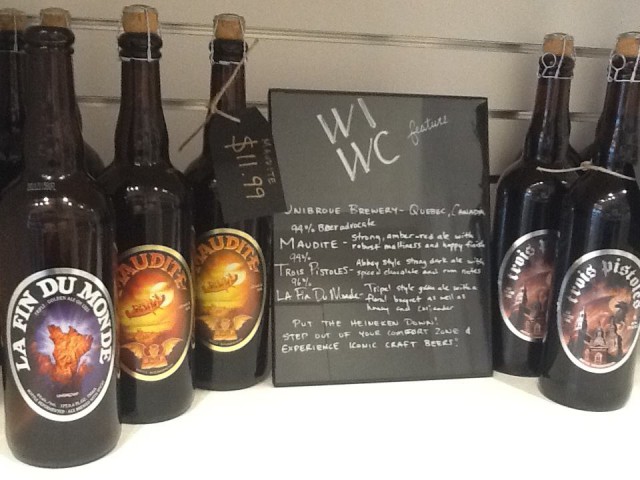 WI
WC
feature
UNIBROUE BREWERY - QUEBEC, CANADA
99% Beer advocate
MAUDITE - strong, amber-red ale with
robust maltiness and hoppy finish
99%
TROIS PISTOLES - Abbey style strong dark ale with
spiced chocolate and rum notes
96%
LA FIN DU MONDE - Tripel style ale with a
floral bouquet as well as
honey and coriander
PUT THE HEINEKEN DOWN!
STEP OUT OF YOUR COMFORT ZONE &
EXPERIENCE ICONIC CRAFT BEERS!
MAUDITE
$11.99
LA FIN DU MONDE
MAUDITE
MAUDITE
trois pi
trois pistol